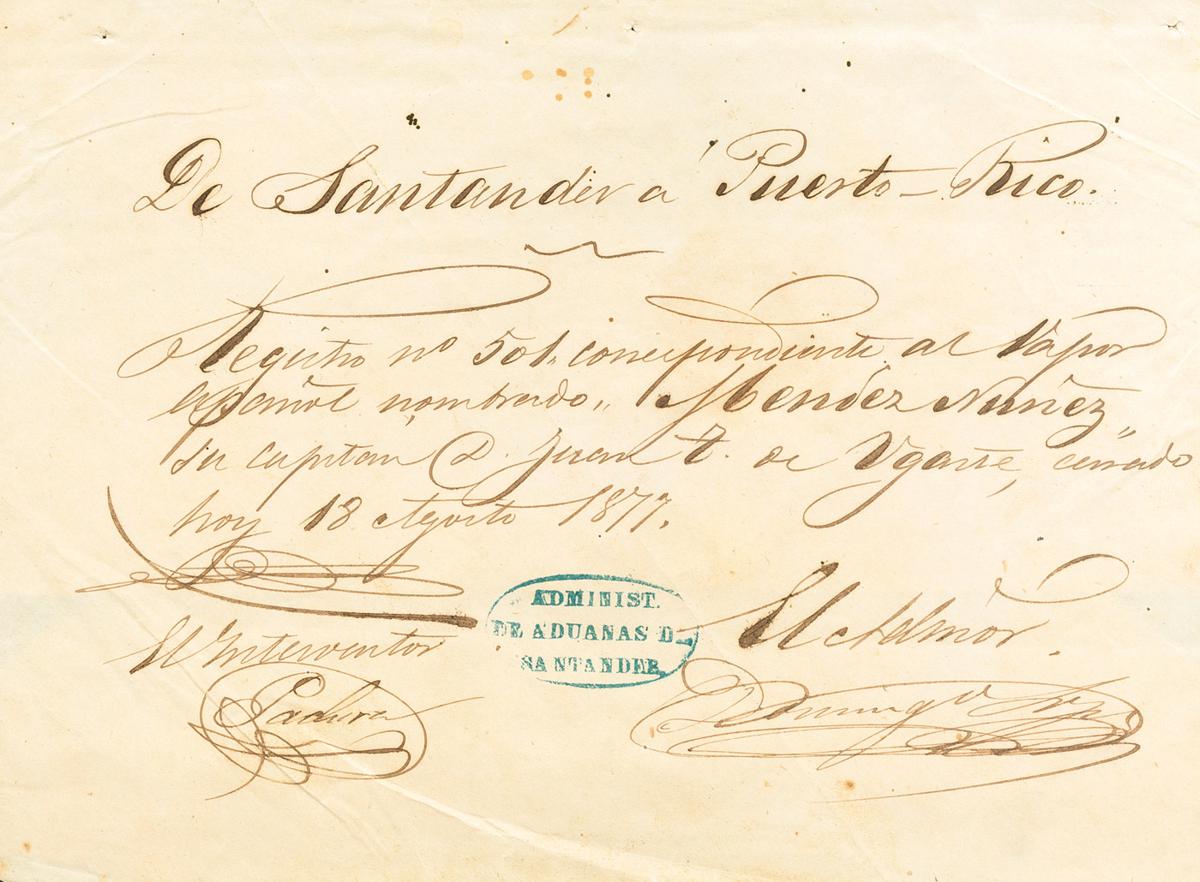 De Santander á Puerto-Rico.
Registro nº 501. correspondiente al Vapor
español nombrado „ Mendez Nuñez „
su capitan D. Juan T. de Ugarte, cerrado
hoy 18 Agosto 1877.
ADMINIST.
DE ADUANAS D.
SANTANDER
El Interventor
El Admor.
Domingo